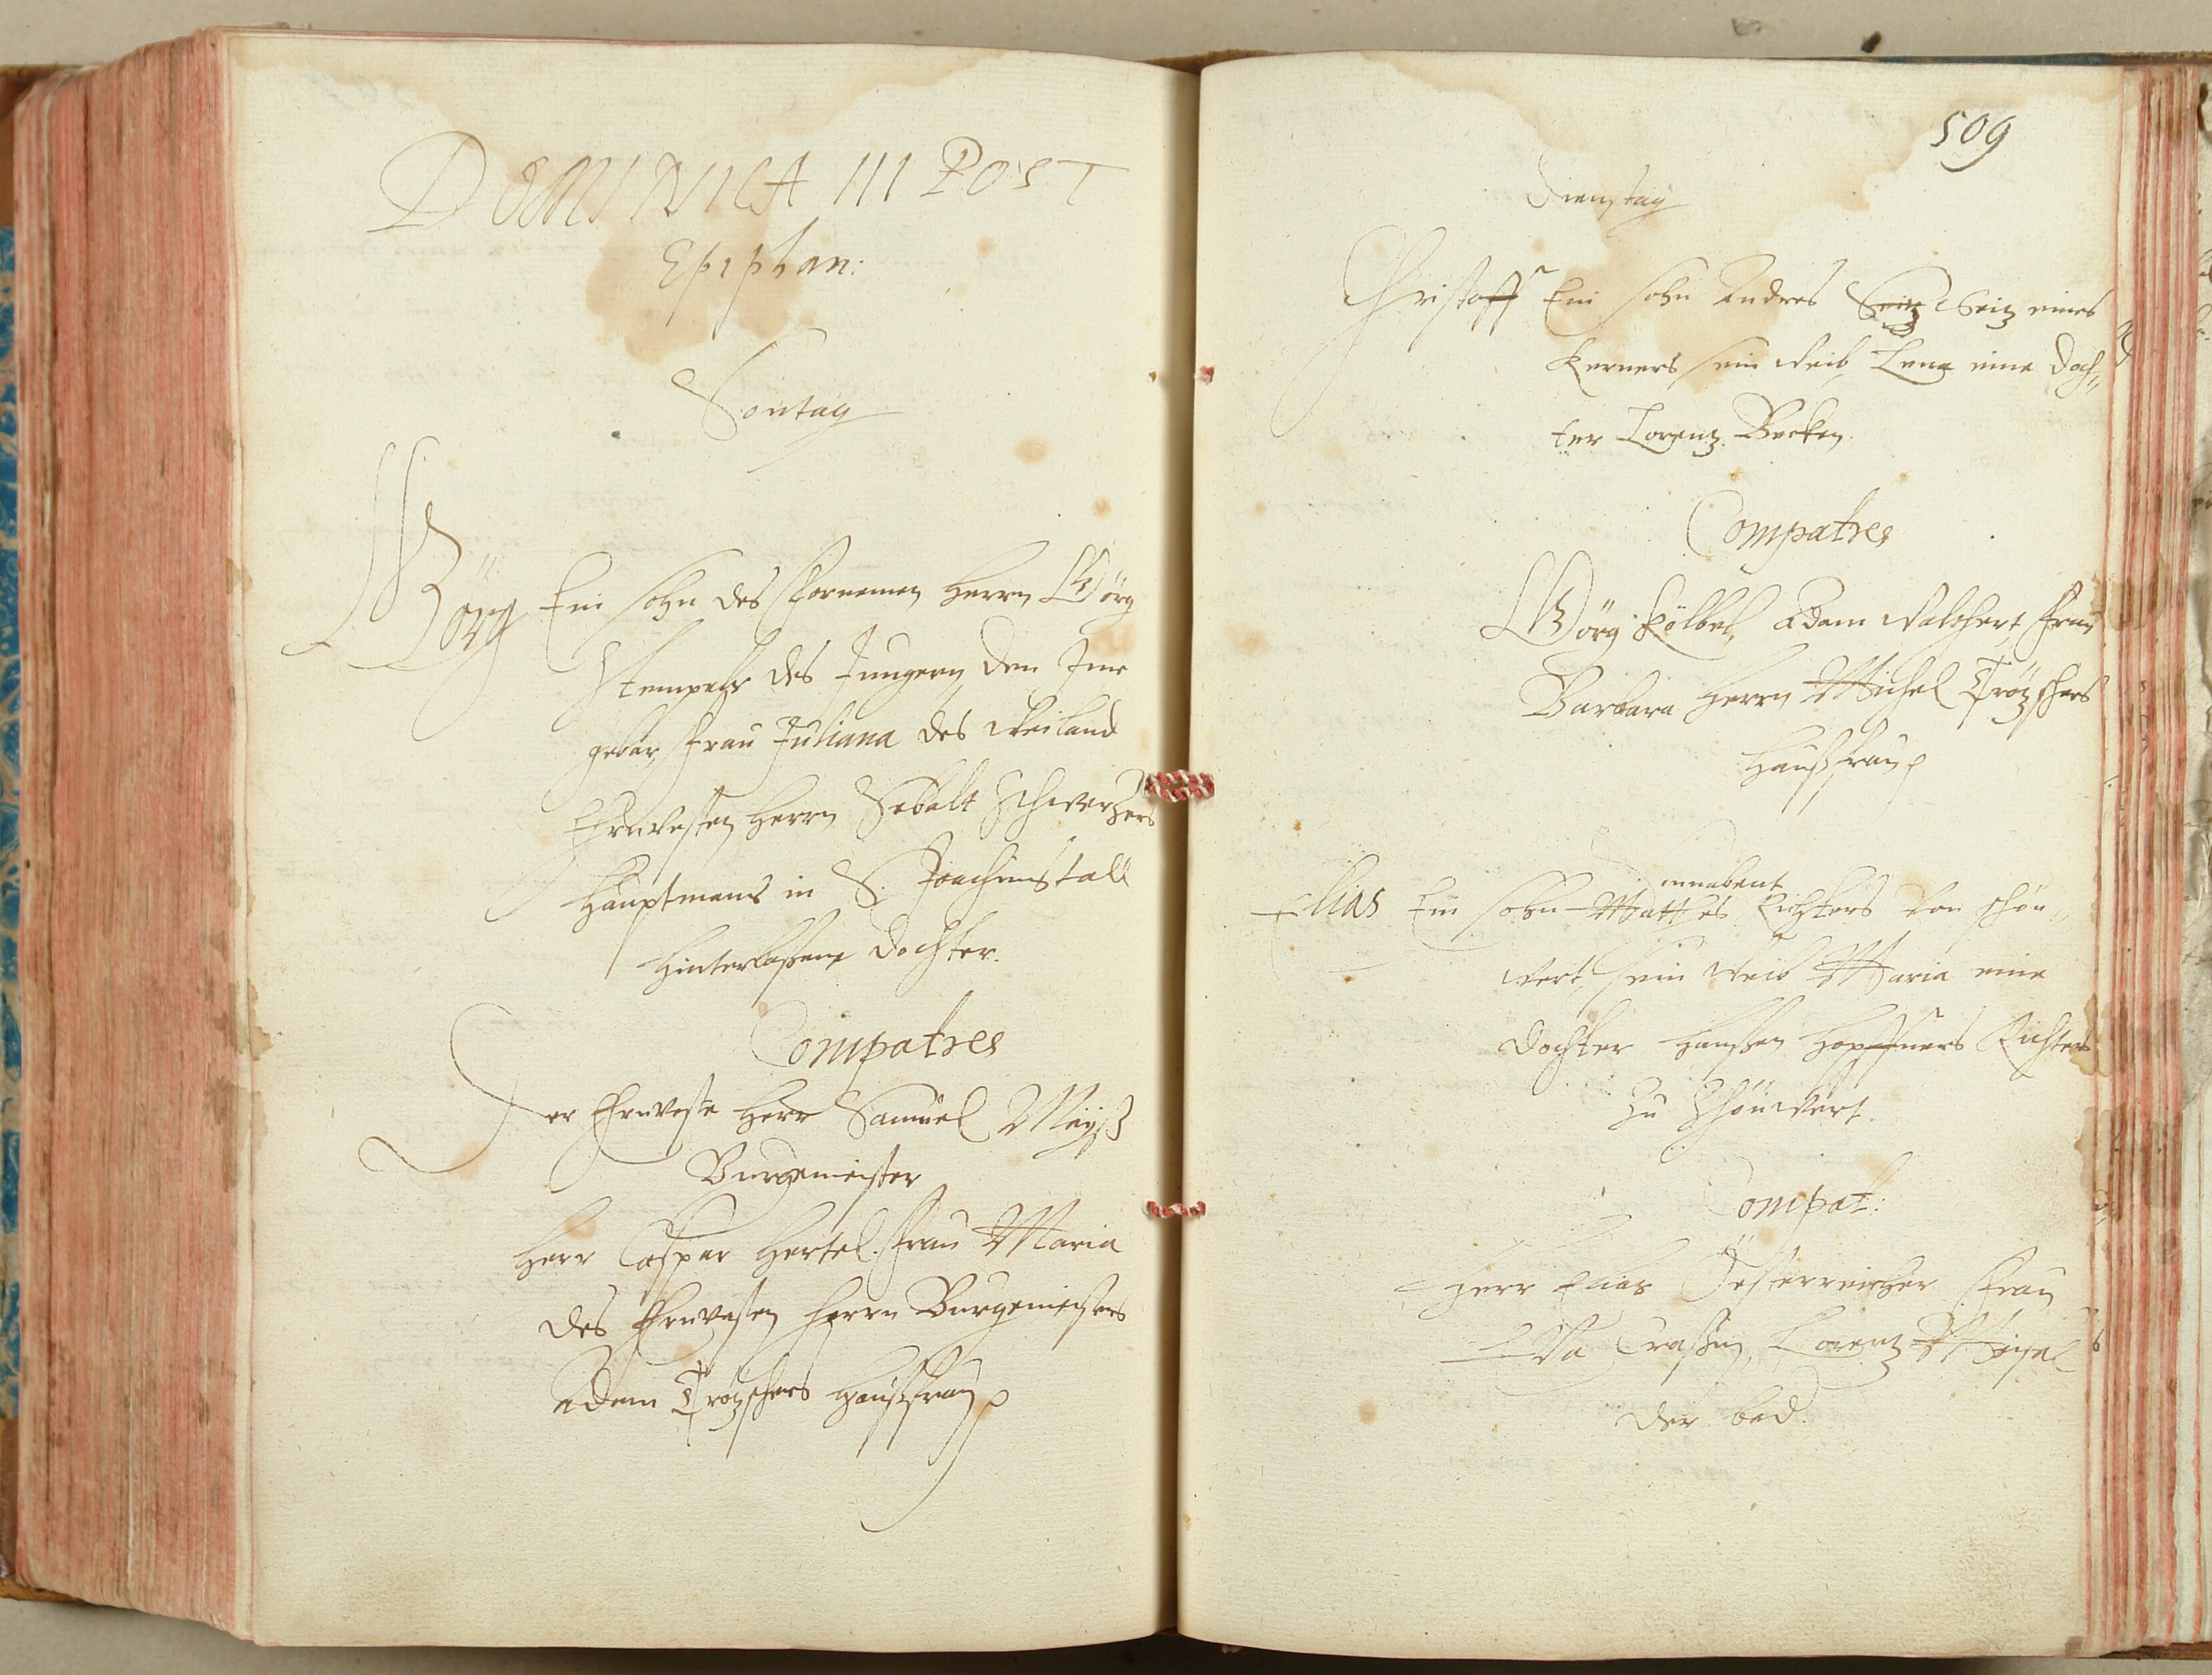 DOMINICA III POST
Epiphan:
Sontag
Görg Ein sohn des Fornemen Herrn Görg
Stempels des Jungern, den Ime
gebar, Frau Juliana des Weiland
Ehrnvesten Herrn Sebalt Schwerzers
Hauptmans in S. Joachimstall
Hinterlaßene Dochter.
Compatres
Der Ehrnveste Herr Samuel Meyß
Burgemeister
Herr Caspar Hertel. Frau Maria
des Ehrnvesten Herrn Burgemeisters
Adam Trözschers Haußfrau
509
Dienstag
Christoff Ein sohn Andres Seitz Seiz eines
Kerners, sein Weib, Lena eine Doch„
ter Lorenz Becken.
Compatres
Görg Kölbel, Adam Walthert, Frau
Barbara Herrn Michel Trözschers
Haußfrau
Sonnabent
Elias Ein sohn Matthes Richters Von schön„
wert, sein Weib Maria eine
Dochter Hanßen Hopffners Richters
zu Schönwert.
Compat:
Herr Elias Österreicher Frau
Eva Craßin, Lorenz Meisel
der bed.